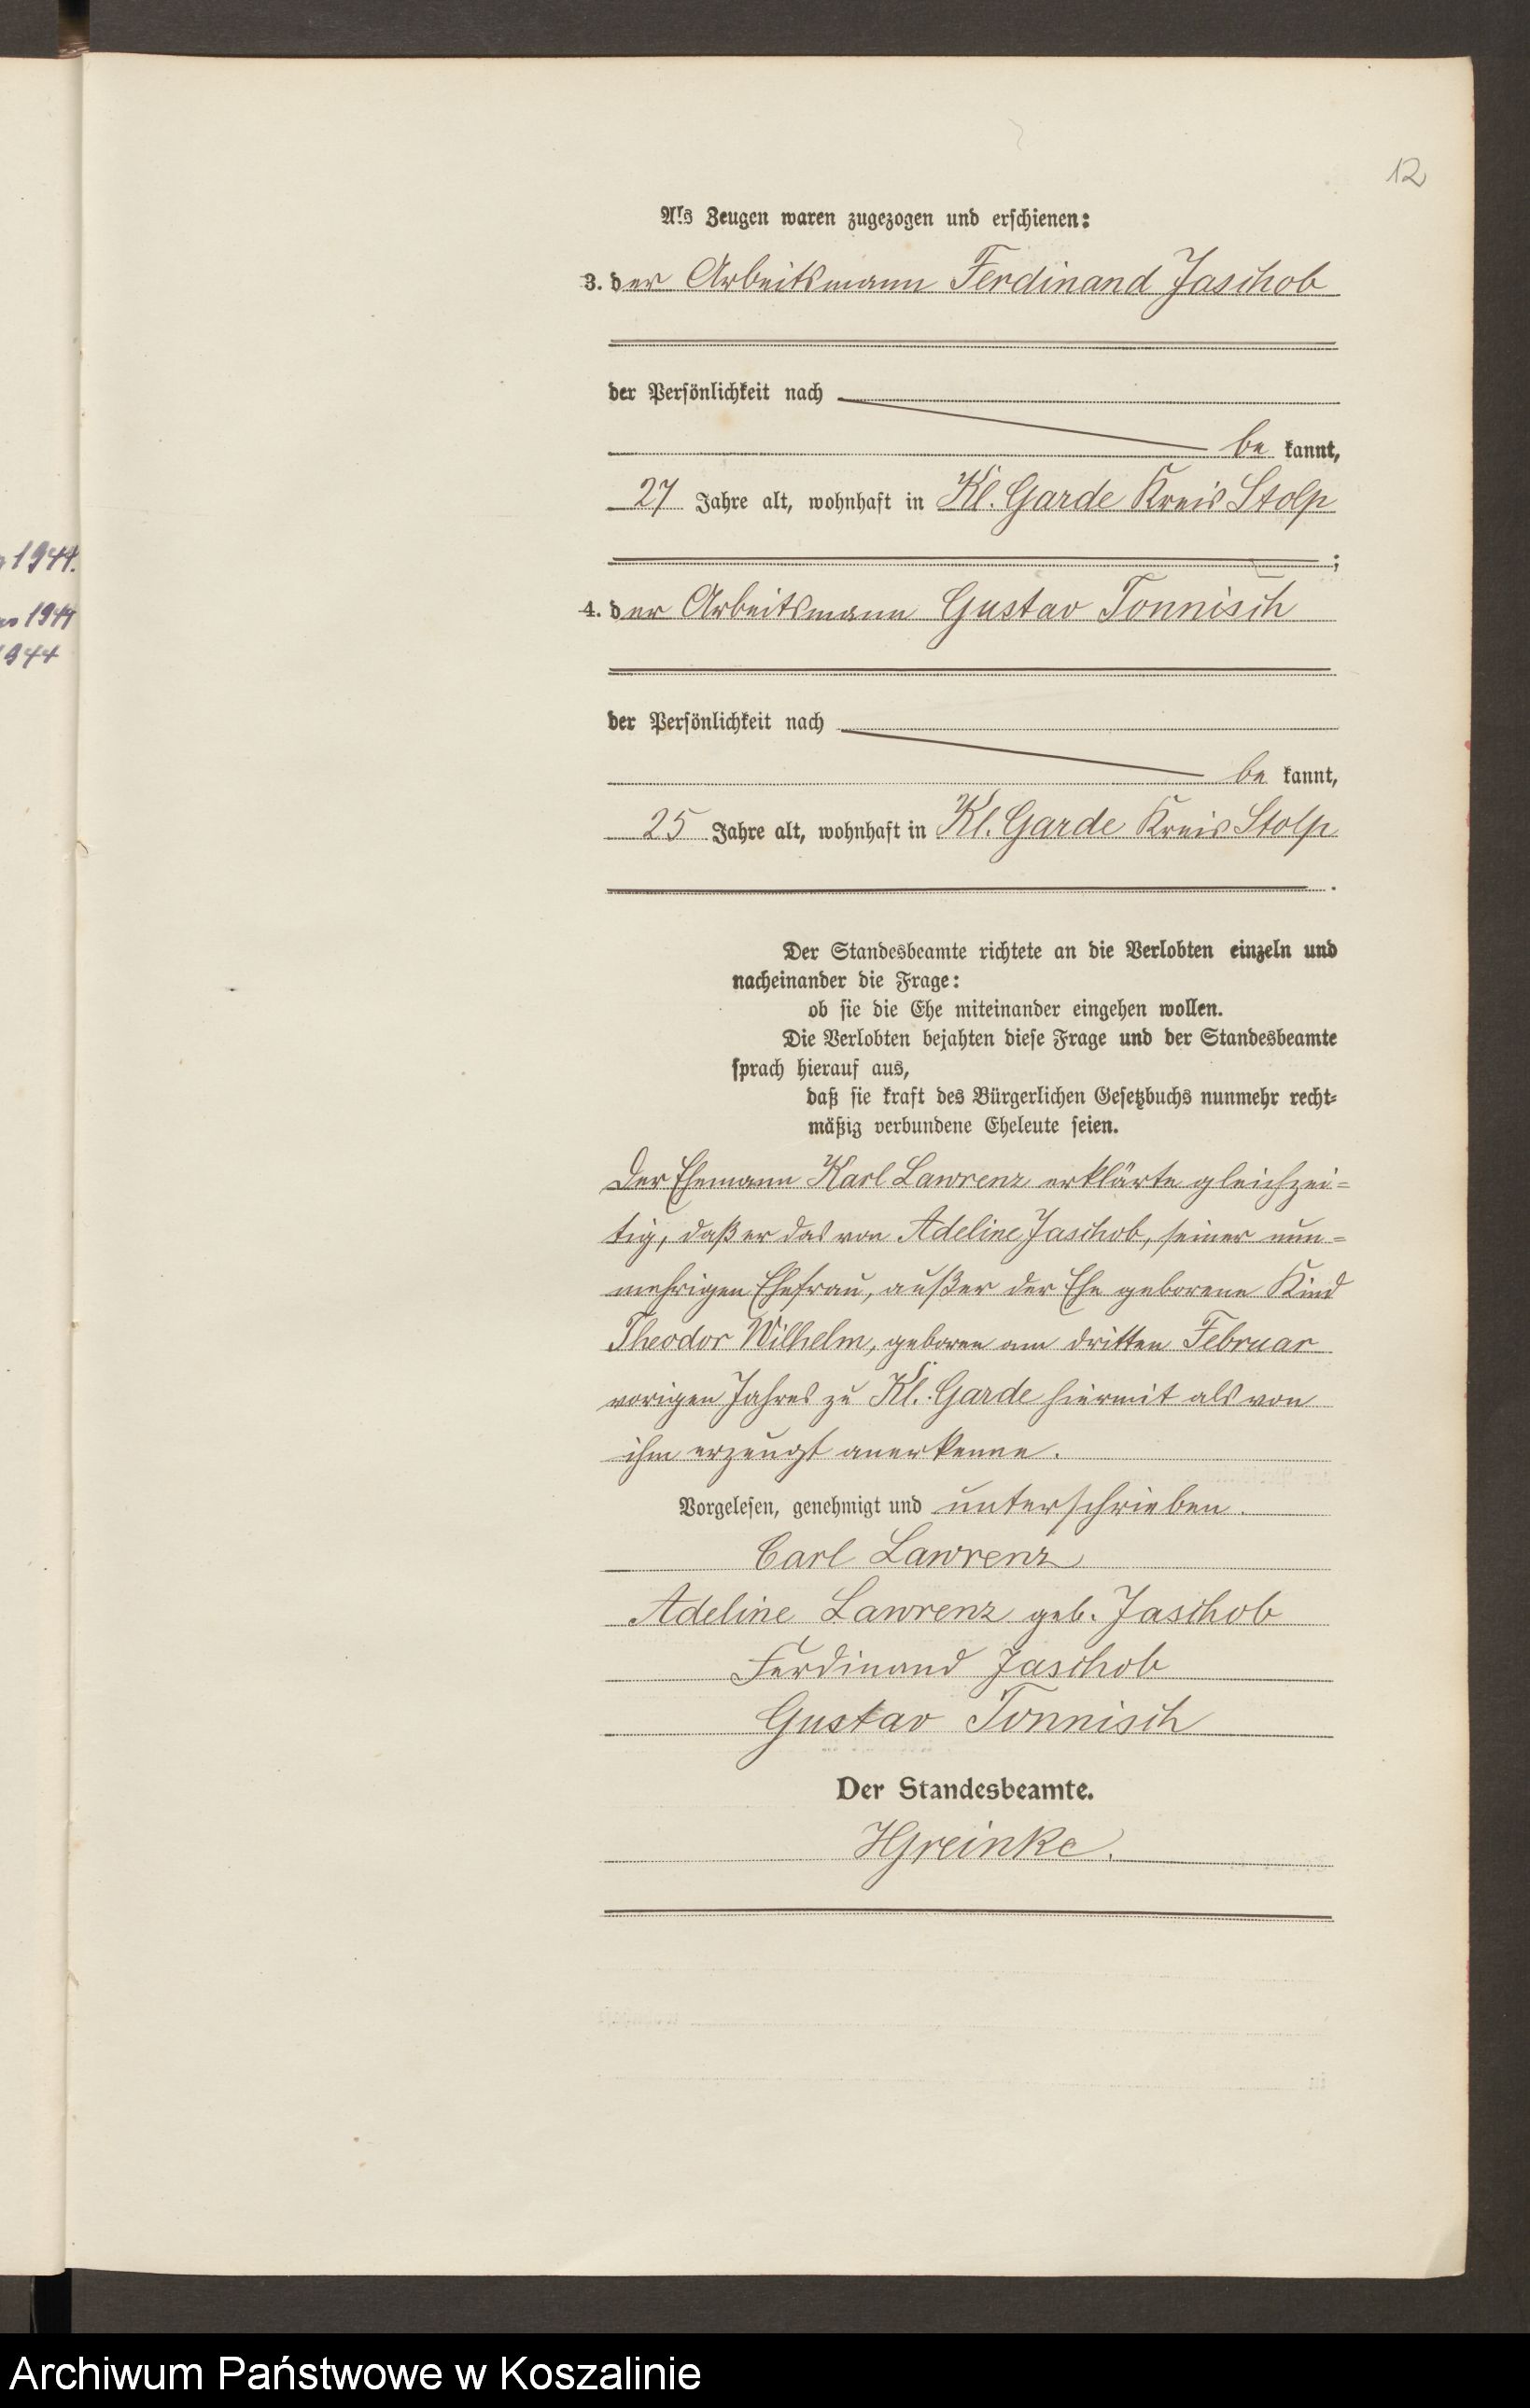 12
Als Zeugen waren zugezogen und erschienen:
3. der Arbeitsmann Ferdinand Jaschob
der Persönlichkeit nach
be kannt,
27 Jahre alt, wohnhaft in Kl. Garde Kreis Stolp
;
4. der Arbeitsmann Gustav Tonnisch
der Persönlichkeit nach
be kannt,
25 Jahre alt, wohnhaft in Kl. Garde Kreis Stolp
.
Der Standesbeamte richtete an die Verlobten einzeln und
nacheinander die Frage:
ob sie die Ehe miteinander eingehen wollen.
Die Verlobten bejahten diese Frage und der Standesbeamte
sprach hierauf aus,
daß sie kraft des Bürgerlichen Gesetzbuchs nunmehr recht-
mäßig verbundene Eheleute seien.
Der Ehemann Karl Lawrenz erklärte gleichzei=
tig, daß er das von Adeline Jaschob, seiner nun=
mehrigen Ehefrau, außer der Ehe geborene Kind
Theodor Wilhelm, geboren am dritten Februar
vorigen Jahres zu Kl. Garde hiermit als von
ihm erzeugt anerkenne.
Vorgelesen, genehmigt und unterschrieben.
Carl Lawrenz
Adeline Lawrenz geb. Jaschob
Ferdinand Jaschob
Gustav Tonnisch
Der Standesbeamte.
HGreinke.
1944.
1944
1944
Archiwum Państwowe w Koszalinie